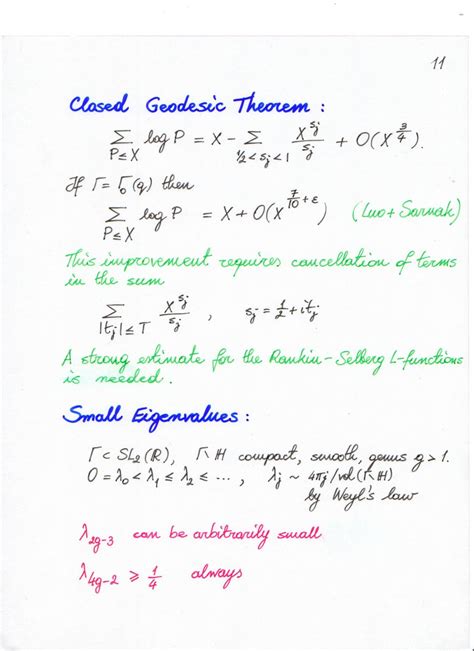 11
Closed Geodesic Theorem :
∑_{P≤X} log P = X - ∑_{1/2<s_j<1} X^{s_j}/s_j + O(X^{3/4}).
If Γ = Γ₀(q) then
∑_{P≤X} log P = X + O(X^{7/10+ε}) (Luo + Sarnak)
This improvement requires cancellation of terms
in the sum
∑_{|t_j|≤T} X^{s_j}/s_j , s_j = 1/2 + it_j
A strong estimate for the Rankin-Selberg L-functions
is needed.
Small Eigenvalues :
Γ ⊂ SL₂(ℝ), Γ\ℍ compact, smooth, genus g > 1.
0 = λ₀ < λ₁ ≤ λ₂ ≤ ..., λ_j ~ 4πj/vol(Γ\ℍ)
by Weyl's law
λ_{2g-3} can be arbitrarily small
λ_{4g-2} ≥ 1/4 always